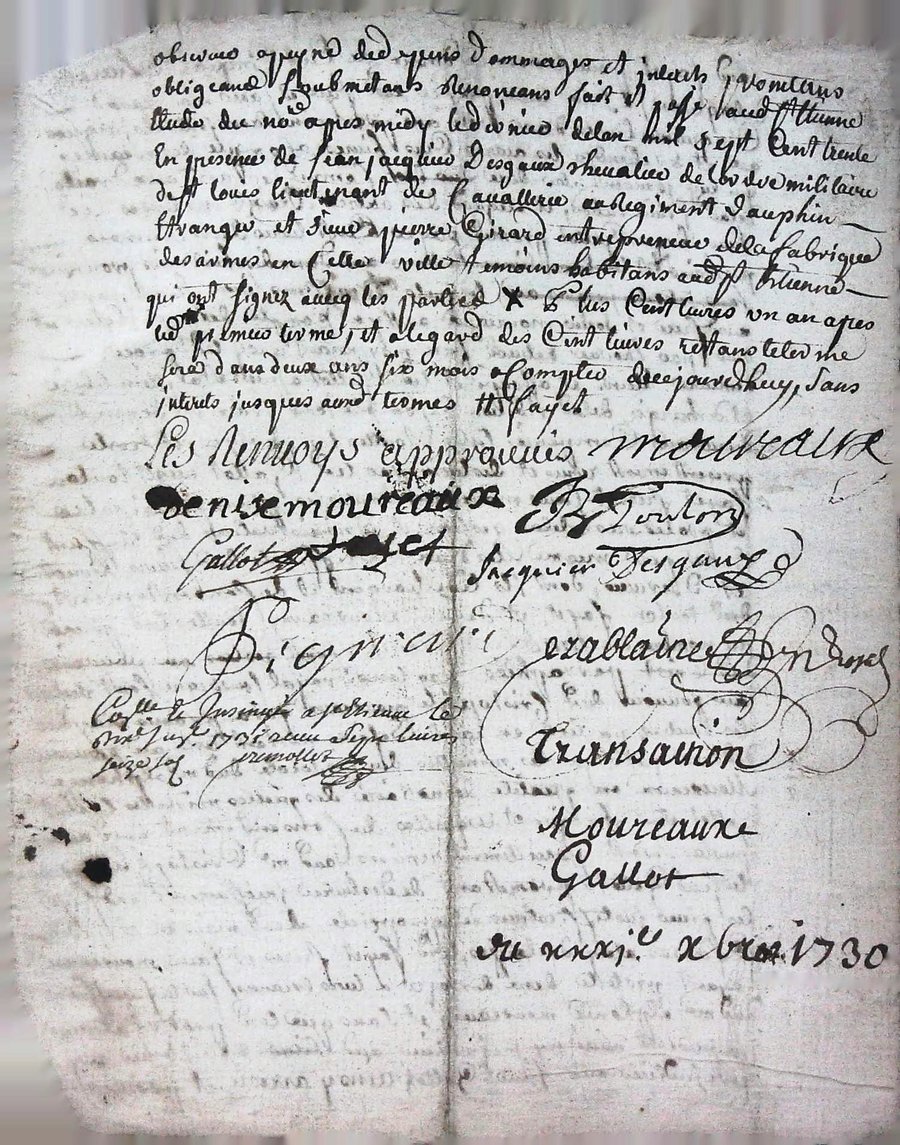 observer a peyne de d ommages et interets promettans
obligeans soubmetans Renonceans fait et passé aud st Etienne
Etude du no.re apres midy le dernier de lan mil sept Cent trente
En presence de Jean jacquier Desgaux chevalier de lordre militaire
de st louis lieutenant de Cavallerie au Regiment dauphin
Etranger et sieur pierre Girard entrepreneur de la fabrique
des armes en Cette ville temoins habitans aud st Etienne
qui ont signez avecq les parties X les Cent livres un an apres
led premier terme, et a legard des Cent livres restans le terme
sera dans deux ans six mois a Compter de cejourdhuy, sans
interets jusques aud termes fayet
Les Renvoys approuvés moureaux
denise moureaux B Toulon
Gallot
Jacquier Desgaux
erablaine
le
1731 livres
seize
Transaction
Moureaux
Gallot
du xxxj.e xbre 1730